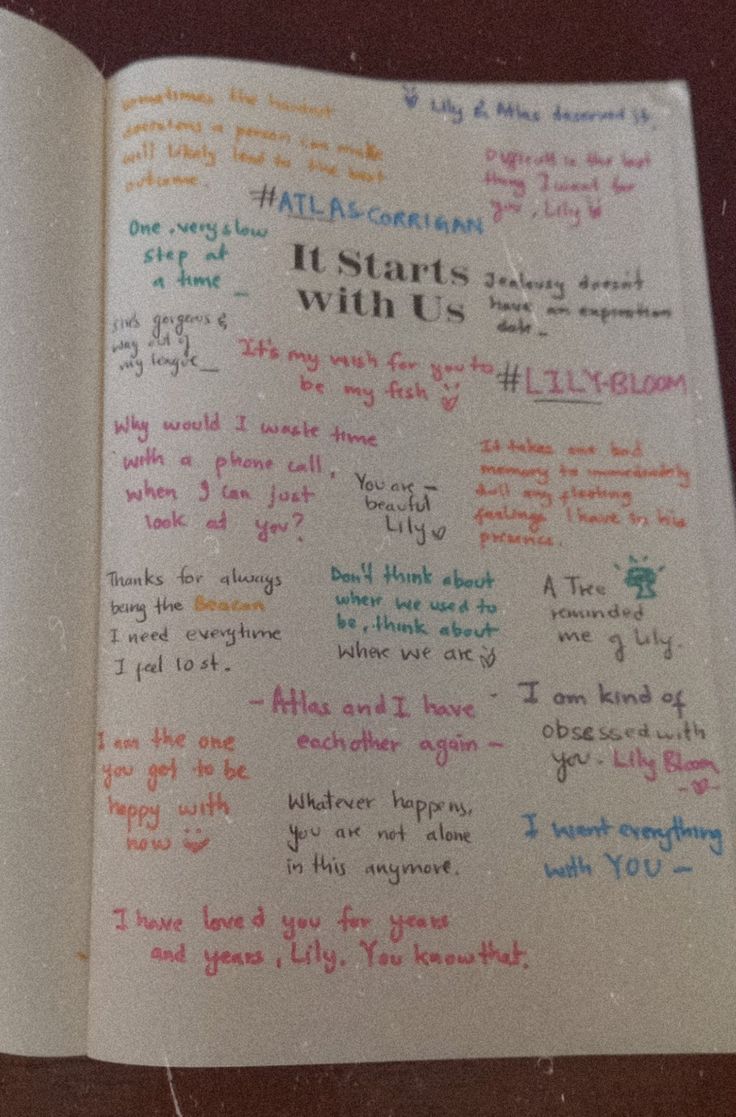 sometimes the hardest
decisions a person can make
will likely lead to the best
outcome.
Lily & Atlas deserved it.
Difficult is the last
thing I want for
you, Lily
#ATLAS-CORRIGAN
One, very slow
step at
a time _
It Starts
with Us
Jealousy doesn't
have an expiration
date _
She's gorgeous &
way out of
my league _
It's my wish for you to
be my fish
#LILY-BLOOM
Why would I waste time
with a phone call,
when I can just
look at you?
You are —
beauful
Lily
It takes one bad
memory to immediately
dull any fleeting
feelings I have in his
presence.
Thanks for always
being the Beacon
I need everytime
I feel lost.
Don't think about
where we used to
be, think about
where we are
A Tree
reminded
me of Lily.
- Atlas and I have -
eachother again -
I am kind of
obsessed with
you. Lily Bloom
I am the one
you get to be
happy with
now
Whatever happens,
you are not alone
in this anymore.
I want everything
with YOU -
I have loved you for years
and years, Lily. You know that.